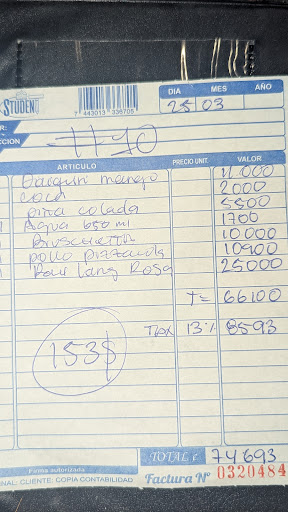 STUDENT
7 443013 336705
DIA MES AÑO
25 03
CCION
ARTICULO PRECIO UNIT. VALOR
Daiquiri mango 11.000
coca 2000
piña colada 5500
Agua 650 ml 1700
Bruschetta 10.000
pollo 10900
Rosa 25000
T= 66100
TAX 13% 8593
153$
TOTAL ¢ 74693
Firma autorizada
NAL: CLIENTE: COPIA CONTABILIDAD
Factura Nº 0320484